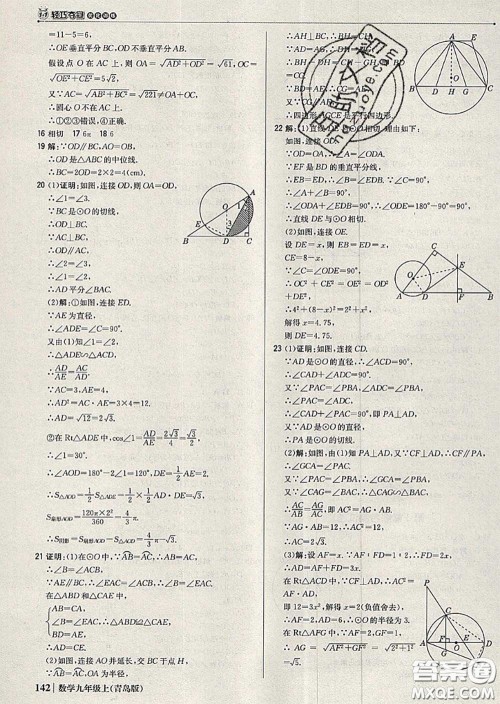 轻巧夺冠
=11-5=6.
∴OE 垂直平分 BC, OD 不垂直平分 AB.
假设点 O 在 AC 上, 则 OA=√(AD²+OD²)=√61, OC=
√(OE²+CE²)=5√2.
又∵AC=√(AB²+BC²)=√221≠OA+OC,
∴圆心 O 不在 AC 上.
∴①②③错误, ④正确.
16 相切 17 6π 18 6
19 解:∵OD//BC, AO=OB,
∴OD 是△ABC 的中位线.
∴BC=2OD=2×2=4(cm).
20 (1)证明:如图, 连接 OD, 则 OA=OD,
∴∠1=∠3.
∵BC 是⊙O 的切线,
∴OD⊥BC.
∵AC⊥BC,
∴OD//AC.
∴∠2=∠3.
∴∠1=∠2.
∴AD 平分∠BAC.
(2)解:①如图, 连接 ED.
∵AE 为直径,
∴∠ADE=∠C=90°.
又由(1)知∠1=∠2,
∴△ADE∽△ACD.
∴AD/AC=AE/AD.
∵AC=3, AE=4,
∴AD²=AC·AE=3×4=12.
∴AD=√12=2√3.
②在 Rt△ADE 中, cos∠1=AD/AE=2√3/4=√3/2,
∴∠1=30°.
∴∠AOD=180°-2∠1=120°, DE=1/2AE=2.
∴S△AOD=1/2S△ADE=1/2×1/2 AD·DE=√3.
S扇形AOD=120π×2²/360=4/3π.
∴S阴影=S扇形AOD-S△AOD=4/3π-√3.
21 证明:(1)在⊙O 中, ∵AB=AC, ∴AB=AC.
∴∠B=∠ACB.
∵AE//BC, ∴∠EAC=∠ACB. ∴∠B=∠EAC.
在△ABD 和△CAE 中,
BA=CA,
∠B=∠EAC,
BD=AE,
∴△ABD≌△CAE(SAS). ∴AD=CE.
(2)如图, 连接 AO 并延长, 交 BC 于点 H.
∵AB=AC, OA 为半径,
∴AH⊥BC. ∴BH=CH.
22 解:(1)直线 DE 与⊙O 相切. 理由如下:
如图, 连接 OD.
∴∠B=∠EDB.
∴∠ODA+∠EDB=90°. ∴∠ODE=180°-90°=90°.
∴直线 DE 与⊙O 相切.
(2)如图, 连接 OE.
设 DE=x, 则 EB=ED=x,
CE=8-x.
∵∠C=∠ODE=90°,
∴OC²+CE²=OE²=OD²+DE².
∴4²+(8-x)²=2²+x².
解得 x=4.75,
则 DE=4.75.
23 (1)证明:如图, 连接 CD.
∵AD 是⊙O 的直径,
∴∠ACD=90°.
∴∠CAD+∠ADC=90°.
又∵∠PAC=∠PBA, ∠ADC=∠PBA,
∴∠PAC=∠ADC.
∴∠CAD+∠PAC=90°, 即 PA⊥DA.
又∵AD 是⊙O 的直径,
∴PA 是⊙O 的切线.
(2)解:由(1)知 PA⊥AD. 又∵CF⊥AD, ∴CF//PA.
∴∠GCA=∠PAC.
又∵∠PAC=∠PBA, ∴∠GCA=∠PBA.
又∵∠CAG=∠BAC, ∴△CAG∽△BAC.
∴AG/AC=AC/AB, 即 AC²=AG·AB.
∵AG·AB=12, ∴AC²=12.
∴AC=2√3.
(3)解:设 AF=x. ∵AF∶FD=1∶2, ∴FD=2x.
∴AD=AF+FD=3x.
在 Rt△ACD 中, ∵CF⊥AD, ∴AC²=AF·AD,
即 12=3x², 解得 x=2(负值舍去).
∴AF=2, AD=6. ∴⊙O 的半径为 3.
在 Rt△AFG 中, ∵AF=2, GF=1,
142 数学九年级上(青岛版)
答案圈
MXQE.COM